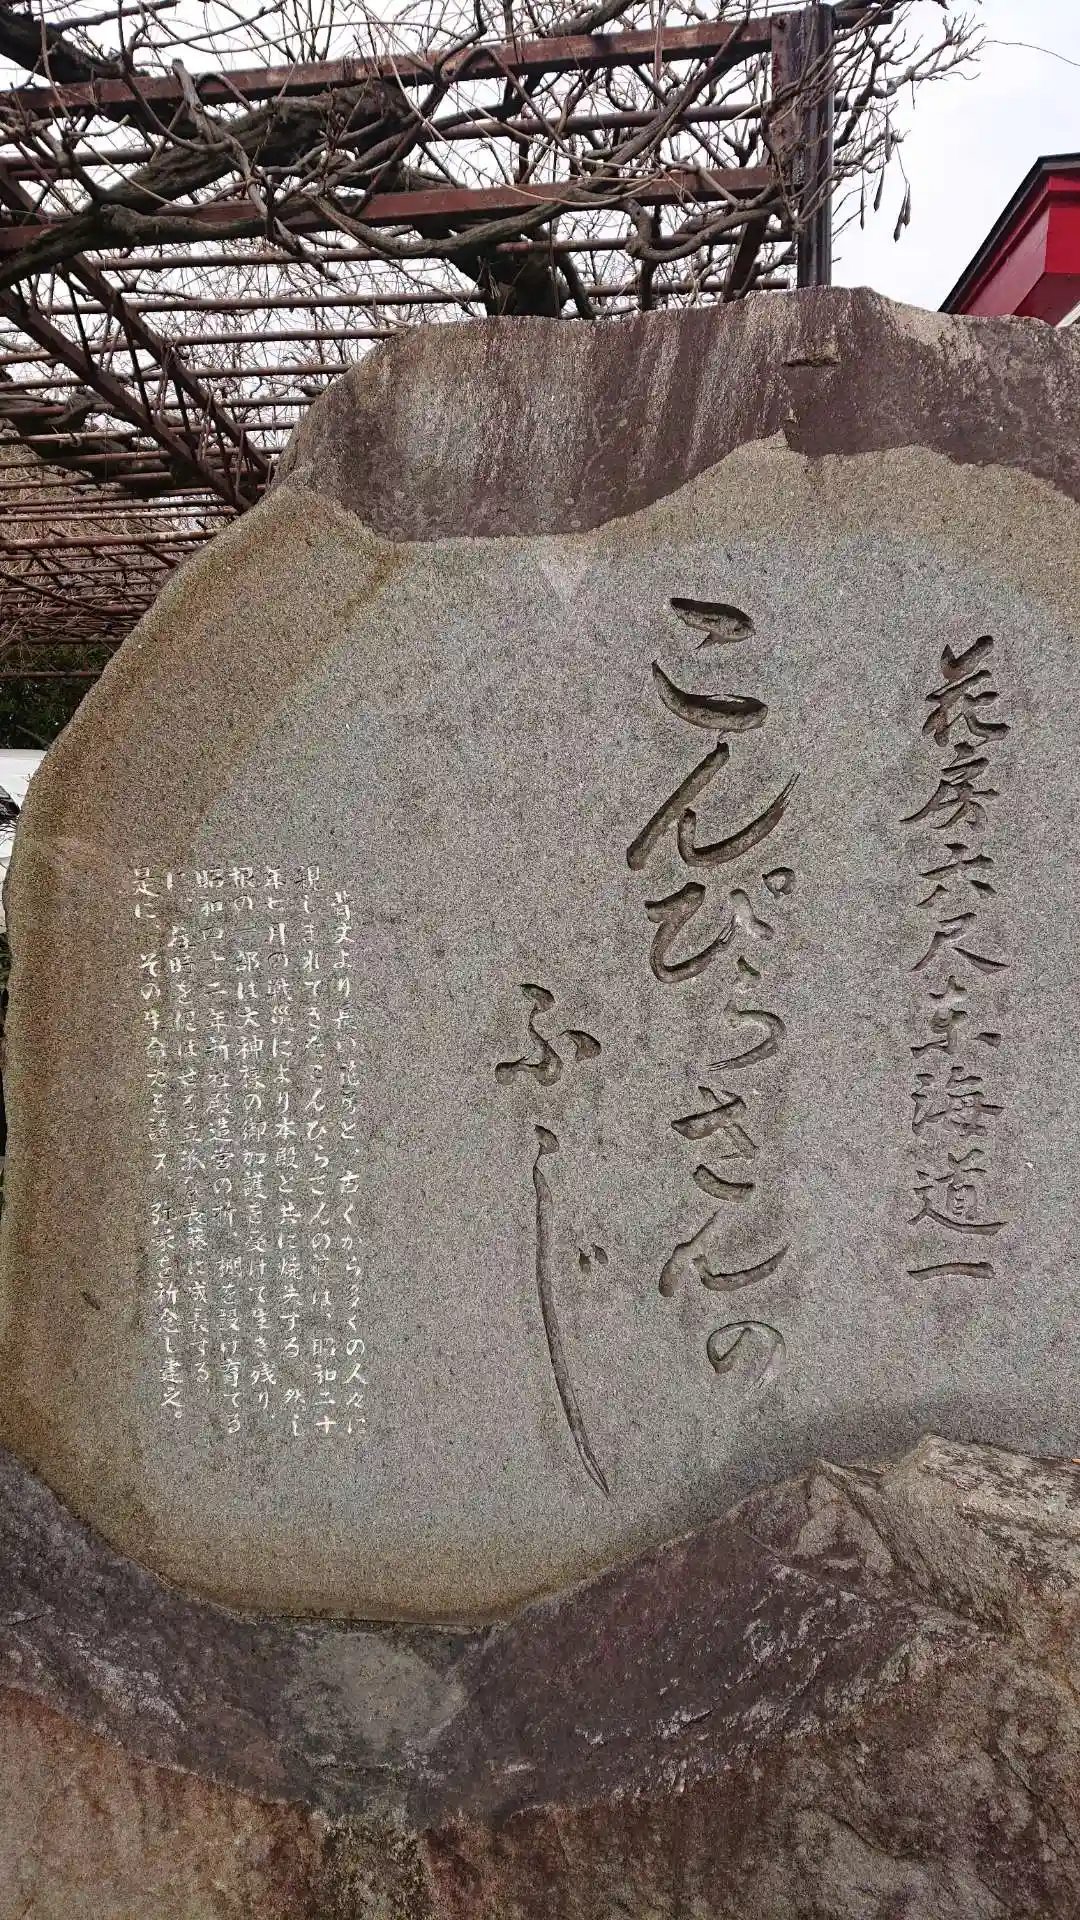 花房六尺東海道一
こんぴらさんの
ふじ
背丈より長い花房と、古くから多くの人々に
親しまれてきたこんぴらさんの藤は、昭和二十
年七月の戦災により本殿と共に焼失する 然し
根の一部は大神様の御加護を受けて生き残り、
昭和四十二年新社殿造営の折、棚を設け育てる
に、存時を偲ばせる立派な長藤に成長する
是に、その生命力を讃え、弥栄を祈念し建之。